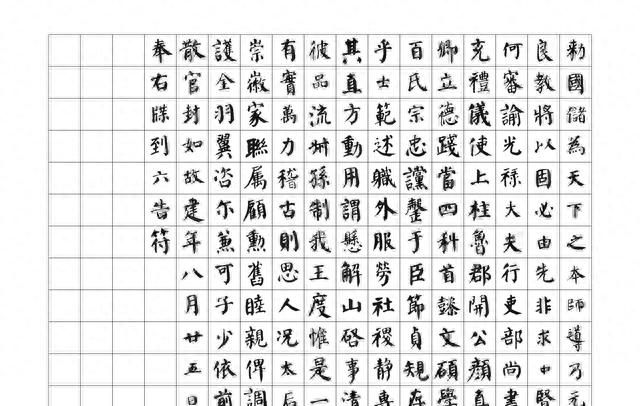 勅國儲為天下之本師導乃元
良教將以固必由先非求中賢
何審諭光祿大夫行吏部尚書
充禮儀使上柱魯郡開公顏真
卿立德踐當四科首懿文碩學
百氏宗忠讜罄于臣節貞規存
乎士範述職外服勞社稷静專
其直方動用謂懸解山啓事清
彼品流州孫制我王度惟是一
有實萬力稽古則思人况太后
崇徽家聯属顧勳舊睦親俾調
護全羽翼咨尔兼可子少依前
散官封如故建年八月廿五日
奉右牒到六告符